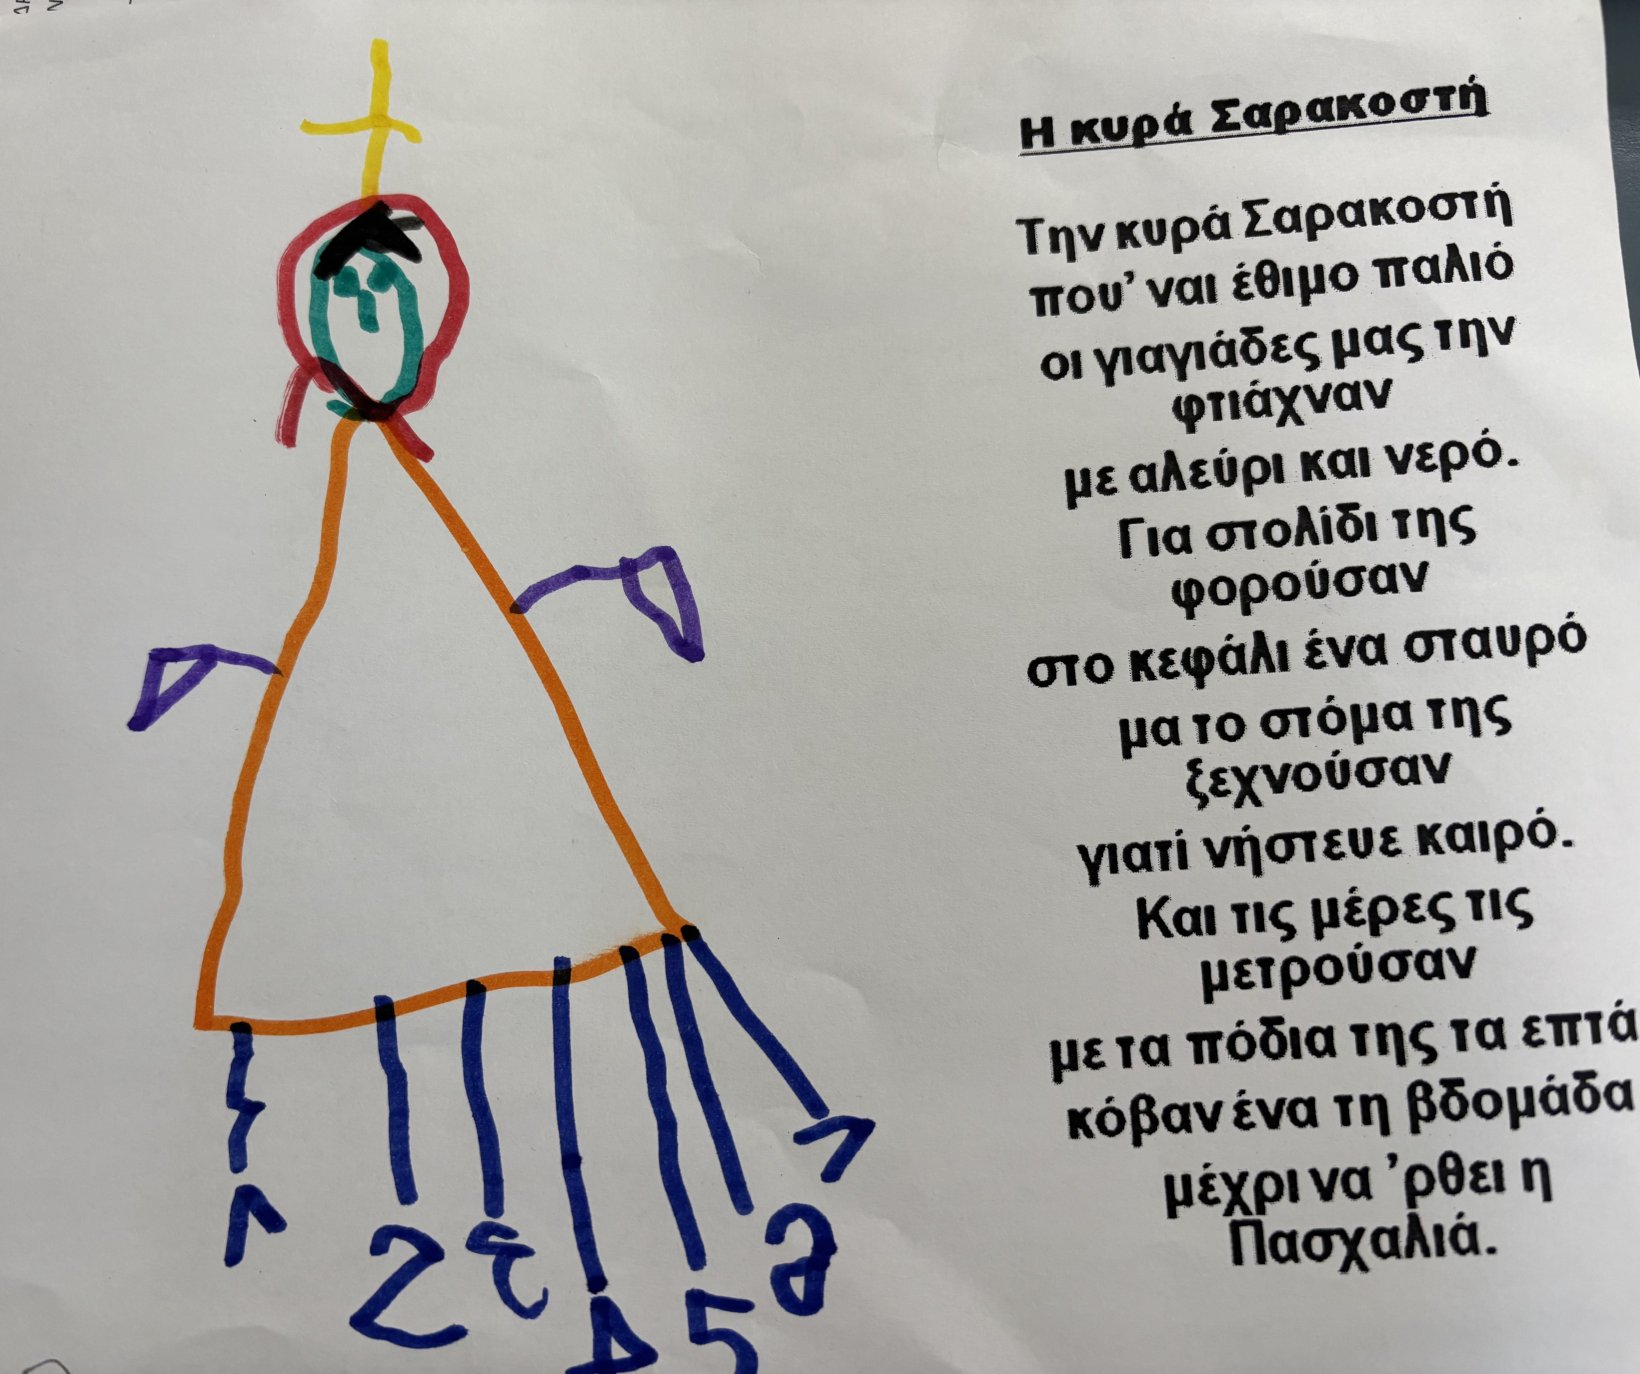 Η κυρά Σαρακοστή
Την κυρά Σαρακοστή
που’ ναι έθιμο παλιό
οι γιαγιάδες μας την
φτιάχναν
με αλεύρι και νερό.
Για στολίδι της
φορούσαν
στο κεφάλι ένα σταυρό
μα το στόμα της
ξεχνούσαν
γιατί νήστευε καιρό.
Και τις μέρες τις
μετρούσαν
με τα πόδια της τα επτά
κόβαν ένα τη βδομάδα
μέχρι να ’ρθει η
Πασχαλιά.
1 2 3 4 5 6 7